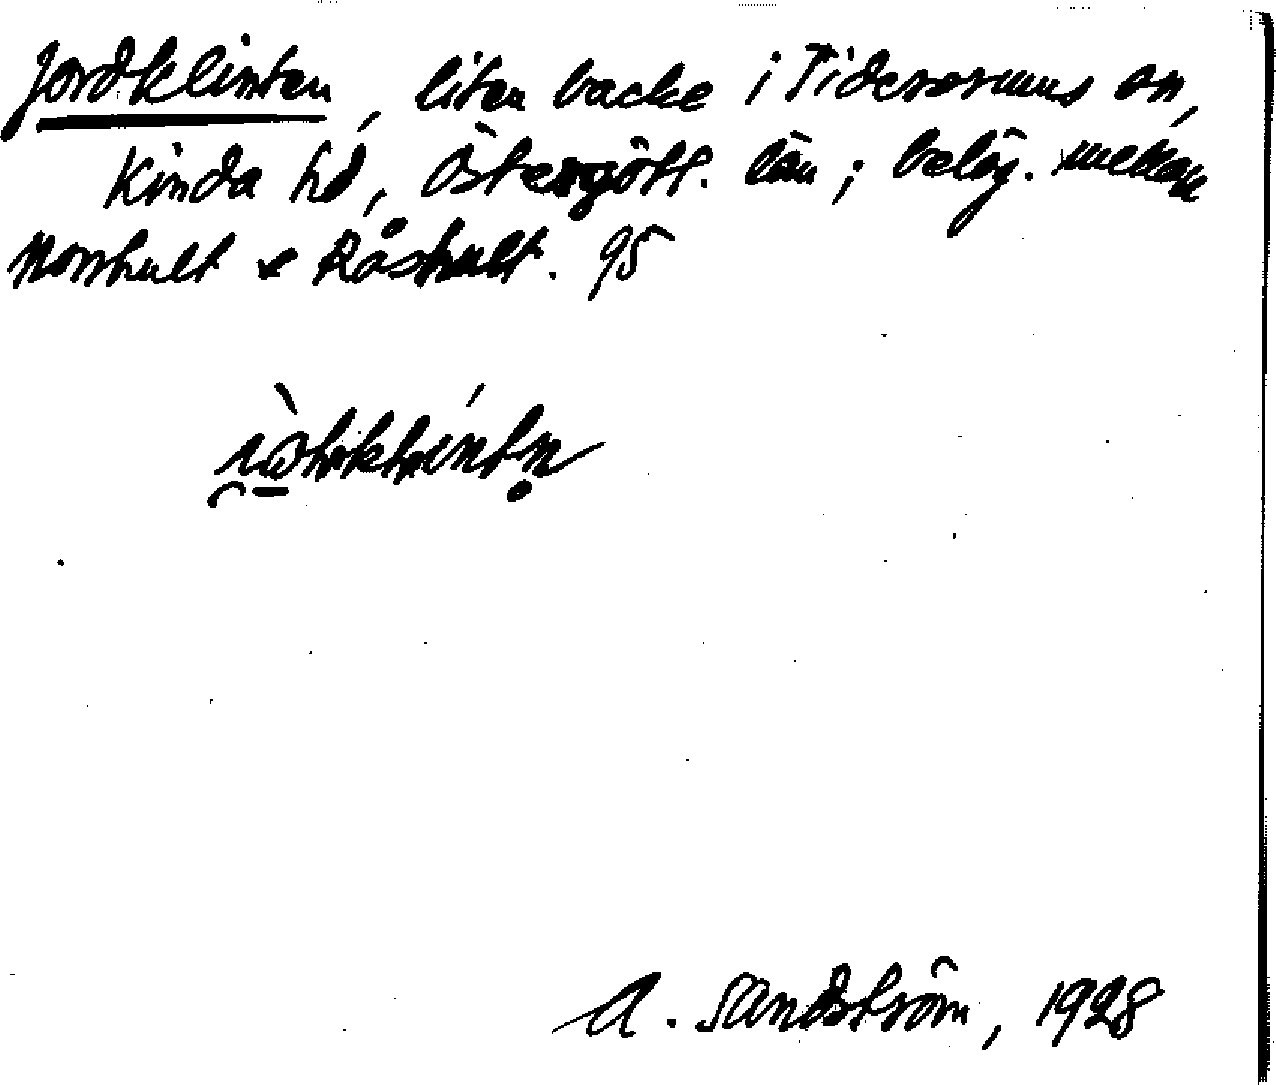 Jordklinten, liten backe i Tidersrums sn,
Kinda hd, Östergötl. län; beläg. mellan
Norrhult & Råshult. 95
A. Sandström, 1928